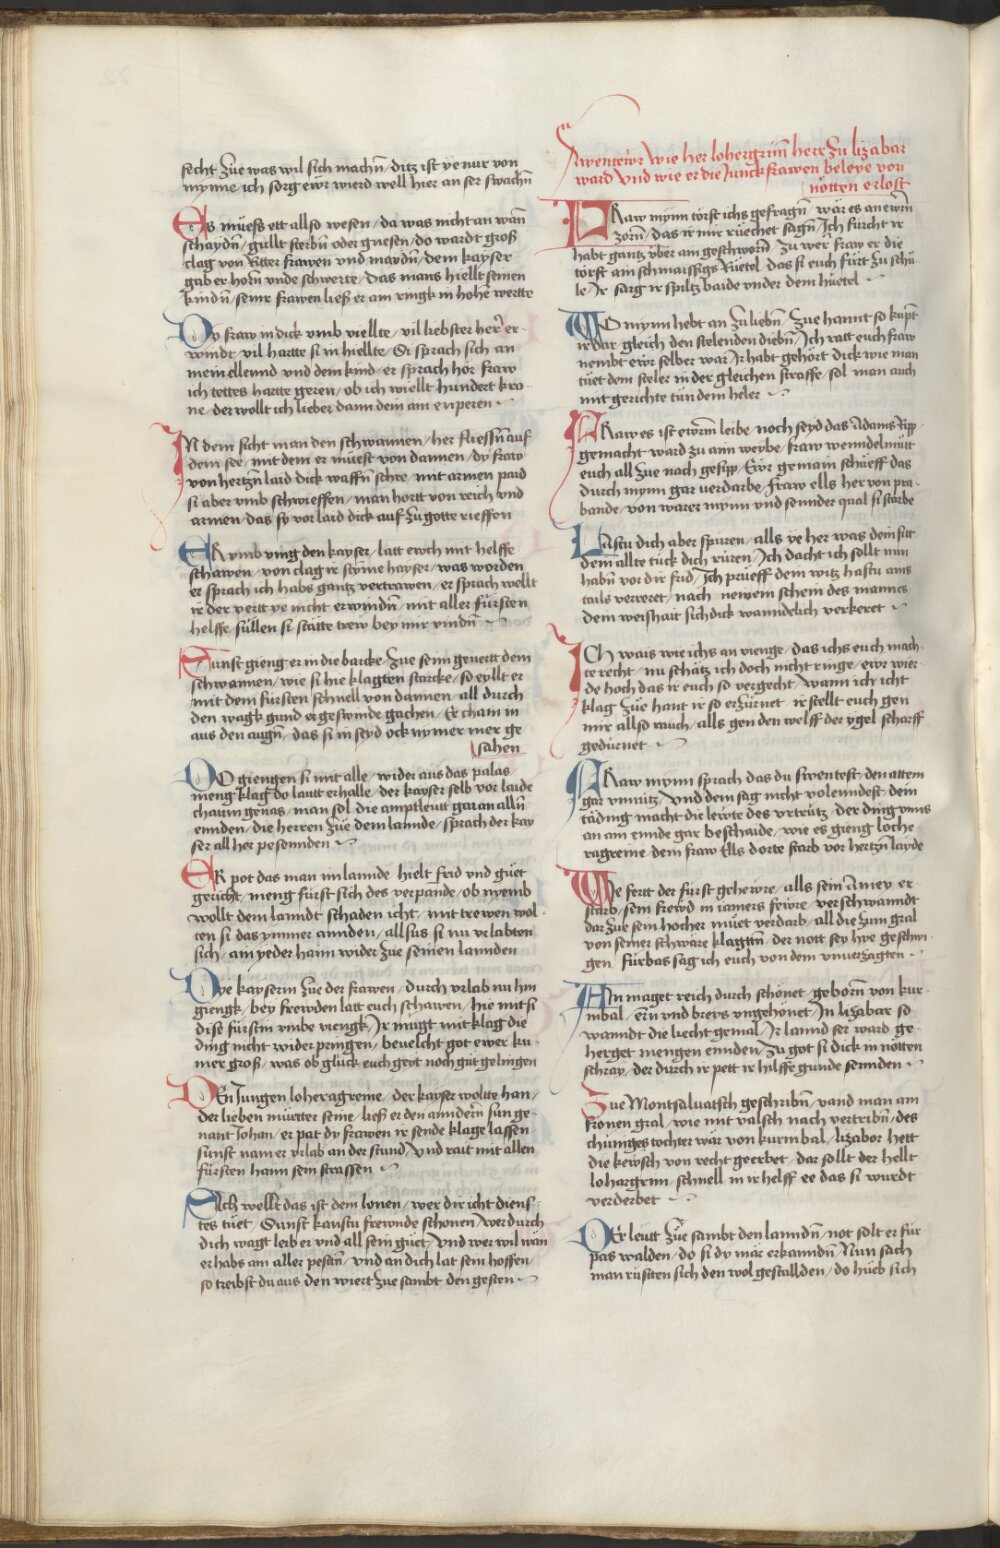 secht Zue was wil sich machñ / ditz ist ye nur von
mynne / ich sorg ewr wierd well hier an ser swachñ
Es müess ett allso wesen / da was nicht an wañ
schaydñ / gullt sterbñ oder gnesen / do wardt groß
clag von Ritter frawen vnd maydñ / dem kayser
gab er horñ vnde schwerte / Das mans hiellt seinen
kindñ / seinr frawen ließ er am ringk in hohē wertte
Dy fraw in dick vmb viellte / vil liebster herr er
windt / vil hartte si in hiellte / Si sprach sich an
mein ellennd vnd dem kind / er sprach hor fraw
ich tettes hartte geren / ob ich wiellt hundert kro
ne / der wollt ich lieber dann dein am enperen
In dem sicht man den schwannen / her fliessñ auf
dem see / mit dem er muest von dannen / dy fraw
von hertzñ laid dick waffñ schre / mit armen paid
si aber vmb schwieffen / man hortt von reich vnd
armen / das sy vor laid dick auf zu gotte rieffen
Er vmb ving den kayser / latt ewch mit helffe
schawen / von clag ir styme hayser / was worden
er sprach ich habs gantz vertrawen / er sprach wellt
ir der vertt ye nicht erwindñ / mit aller fürsten
helffe / süllen si stätte trew bey mir vindñ
Sunst gieng er in die barcke / Zue seim geuertt dem
schwannen / wie si hie klagten starcke / so eyllt er
mit dem fürsten schnell von dannen / all durch
den wagk gund er geswinde gachen / Er cham in
aus den augñ / das si in seyd ock nymer mer ge
sahen
Do giengen si mit alle / wider aus das palas
meng klag do lautt erhalle / der kayser selb vor laide
chaum genas / man sol die amptleutt gar an allñ
ennden / die herren Züe dem lannde / sprach der kay
ser all her pesennden
Er pot das man im lannde hielt frid vnd güet
gericht / meng fürst sich des verpande / ob nyemb
wollt dem lanndt schaden icht / mit trewen wol
ten si das ymmer annden / allsus si nu vrlabten
sich / am yeder haim wider Zue seinen lannden
Dye kayserin Zue der frawen / durch vrlab nu hin
giengk / bey frewden latt euch schawen / hie mit si
dise fürstin vmbe viengk / Ir mügt mit klag die
ding nicht wider pringen / beuelcht got ewer ku
mer groß / was ob glück euch geit noch güt gelingen
Den Jungen loheragreine / der kayser wollte han /
der lieben müetter seine / ließ er den anndern sun ge
nant Johan / er pat dy frawen ir sende klage lassen
sunst nam er vrlab an der stund / vnd rait mit allen
fürsten haim sein strassen
Ach wellt das ist dem lonen / wer dir icht diens
tes tüet / Sunst kanstu frewnde schonen / Wer durch
dich wagt leib er vnd all sein güet / Vnd wer wil wan
er habs am aller pestñ / vnd an dich lat sein hoffen
so treibst du aus den wiert Zue sambt den gesten
Awentewr Wie her lohergrim̃ herr zu lizabar
ward Vnd wie er die Junckfrawen beleye von
nötten erlost
Fraw mynn törst ichs gefragñ / wär es an ewrm
zorñ / das ir mir rüechet sagñ / Ich fürcht ir
habt gantz über am geschworñ / Zu wer fraw er die
törst am schmaissigs Rüetel / das si euch fürt zu schü
le / Ir sarg ir spiltz baide vnder dem hüetel
Wo mynn hebt an Zu liebñ / Zue hannt so kupt
ir dar gleich den stelenden diebñ / Ich ratt euch fraw
nembt ewr selber war / Ir habt gehört dick wie man
tüet dem steler in der gleichen straffe / sol man auch
mit gerichte tün dem heler
Fraw es ist ewrm leibe / noch seyd das Adams ripp
gemacht ward zu ann weybe / fraw wenndelmütt
euch all zue nach gesipp / Ewr gemain schüeff das
durch mynn gar verdarbe / fraw ells her von pra
bande / von warer mynn vnd sennder qual si starbe
Lastu dich aber spüren / alls ye her was dein sitt
dem allte tück dich rüren / Ich dacht ich sollt nun
habñ vor dir frid / Ich prüeff dein witz hastu ains
tails verreret / nach newem schein des mannes
dem weishait sich dick wanndelich verkeret
Ich wais wie ichs an vienge / das ichs euch mach
te recht / nu schätz ich doch nicht ringe / ewr wier
de hoch das ir euch so vergecht / wann ich icht
klag Züe hant ir so erzürnet / ir stellt euch gen
mir allso rauch / alls gen den welff der ygel scharff
gedürnet
Fraw mynn sprach das du swentest / den attem
gar vnnütz / Vnd dein sag nicht volenndest / dein
täding macht die lewte des vrtrütz / der ding vnns
an am ennde gar beschaide / wie es gieng lohe
ragreine / dem fraw Ells dorte starb vor hertzñ layde
We fertt der fürst geheure / alls sein amey er
starb / sein frewd in iamers fewre / verschwanndt
dar Zue sein hocher müet verdarb / all die zum gral
von seiner schware klagttñ / der nott sey hye geschwi
gen / fürbas sag ich euch von dem vnuerzagten
Ain maget reich durch schönet / geborñ von kur
nubal / ern vnd breys vngehönet / In lizabare so
wanndt die liecht gemal / Ir lannd ser ward ge
herget mengen ennden / Zu got si dick in nötten
schray / der durch ir pett ir hilffe gunde sennden
Zue Montsaluatsch geschribñ / vand man am
fronen gral / wie mit valsch nach vertribñ / des
chüniges tochter wär von kurmbal / lizabor hett
die kewsch von recht geerbet / dar sollt der hellt
lohargrim / schnell in ir helff ee das si wurdt
verderbet
Der leutt Zue sambt den lanndñ / not solt er für
pas walden / do si dy mär erkanndñ / Nun sach
man rüstten sich den wol gestallden / do hüeb sich